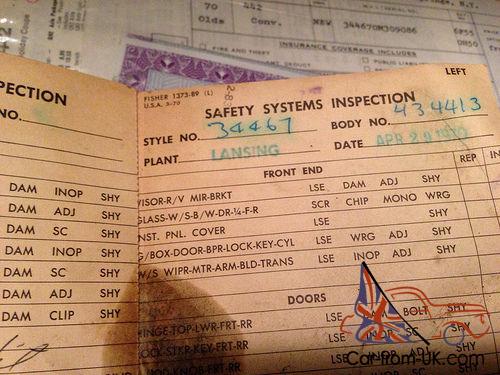 70 442
Olds Conv. NEW 344670M309086
INSURANCE COVERAGE INCLUDES
FIRE AND THEFT
PUBLIC
LEFT
FISHER 1373-89 (L)
U.S.A. 5-70
SAFETY SYSTEMS INSPECTION
STYLE NO. 34467 BODY NO. 434413
PLANT LANSING DATE APR 29 1970
FRONT END REP IN
VISOR-R/V MIR-BRKT LSE DAM ADJ SHY
GLASS-W/S-B/W-DR-¼-F-R SCR CHIP MONO WRG
NST. PNL. COVER LSE SHY
G/BOX-DOOR-BPR-LOCK-KEY-CYL LSE WRG ADJ SHY
W/S WIPR-MTR-ARM-BLD-TRANS LSE INOP ADJ SHY
DOORS
HINGE-TOP-LWR-FRT-RR LSE BOLT SHY
OCK-STKR-KEY-FRT-RR LSE SC SHY
KNOB-FRT-RR LSE INOP ADJ SHY
PECTION
NO.
DAM INOP SHY
DAM ADJ SHY
DAM SC SHY
DAM INOP SHY
DAM SC SHY
DAM ADJ SHY
DAM CLIP SHY
Car-from-UK.com